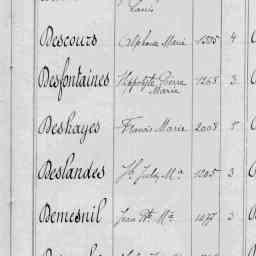 Louis
Descours Alphonse Marie 1535 4
Desfontaines Hippolyte Pierre 1268 3
Marie
Deshayes Francis Marie 2008 5
Deslandes Jh. July Mie 1205 3
Demesnil Jean Bte Mie 1077 3